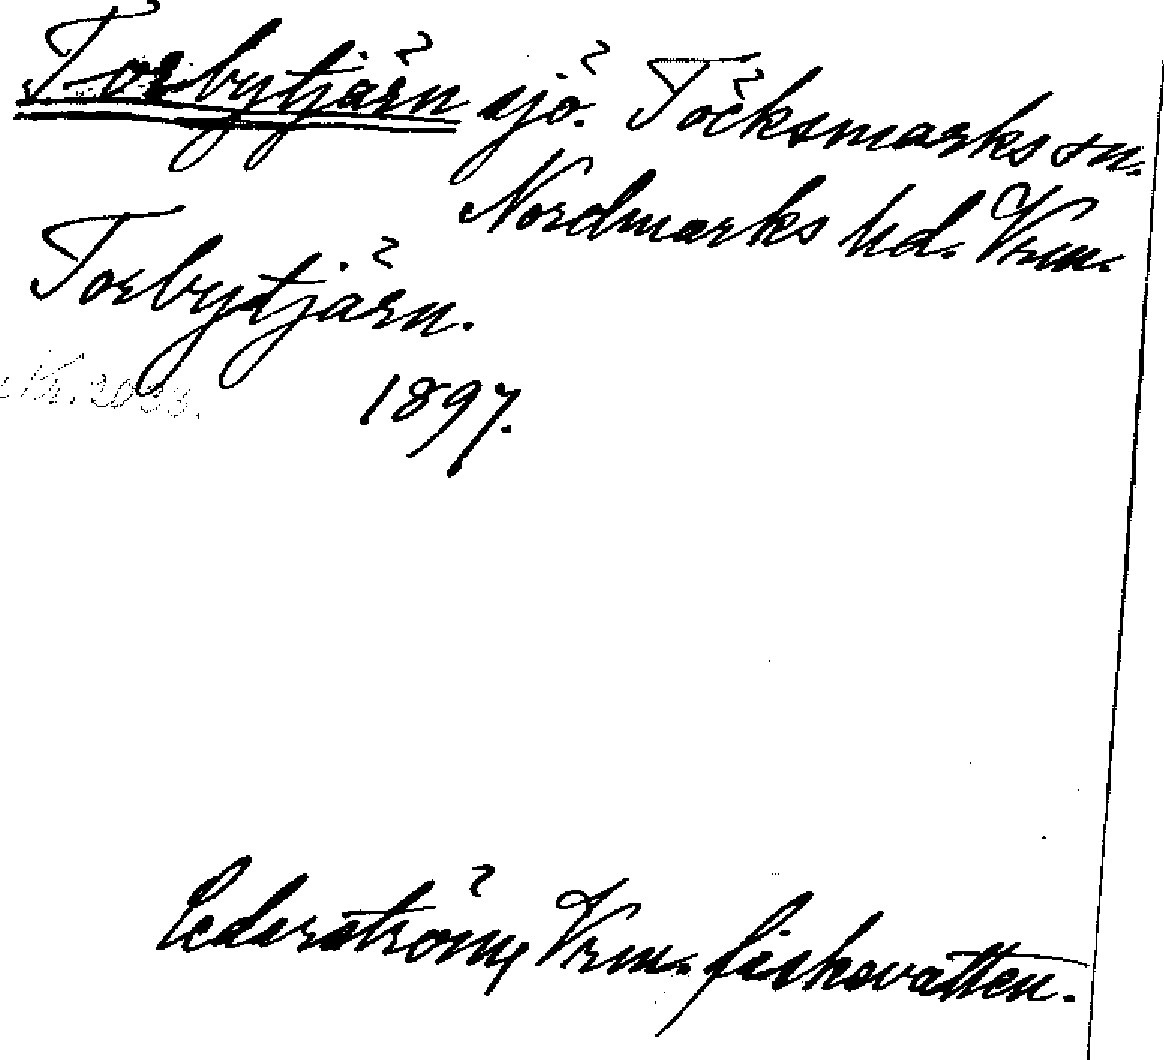 Torbytjärn sjö. Töcksmarks sn.
Nordmarks hd. Vrm.
Torbytjärn.
1897.
Cederström, Vrm. fiskevatten.